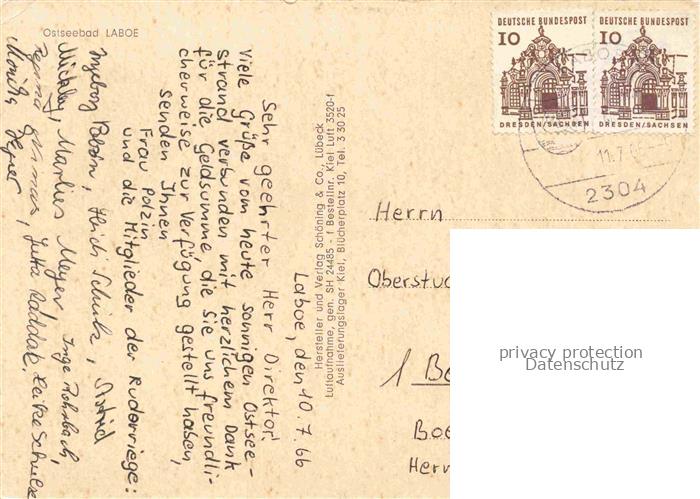 Ostseebad LABOE
Laboe, den 10.7.66
Sehr geehrter Herr Direktor!
Viele Grüße vom heute sonnigen Ostsee-
strand verbunden mit herzlichem Dank
für die Geldsumme, die Sie uns freundli-
cherweise zur Verfügung gestellt haben,
senden Ihnen
Frau Polzin
und die Mitglieder der Ruderriege:
Ingeborg Heidi Schulz, Astrid
Marlies Meyer, Inge
Jutta Heike
Monika
Hersteller und Verlag Schöning & Co., Lübeck
Luftaufnahme, gen. SH 24485 - f Bestellnr. Kiel Luft 3520-f
Auslieferungslager Kiel, Blücherplatz 10, Tel. 3 30 25
DEUTSCHE BUNDESPOST
10
DRESDEN/SACHSEN
DEUTSCHE BUNDESPOST
10
DRESDEN/SACHSEN
11.7.66
2304
Herrn
Oberstu
1 Be
Boe
Herr
privacy protection
Datenschutz